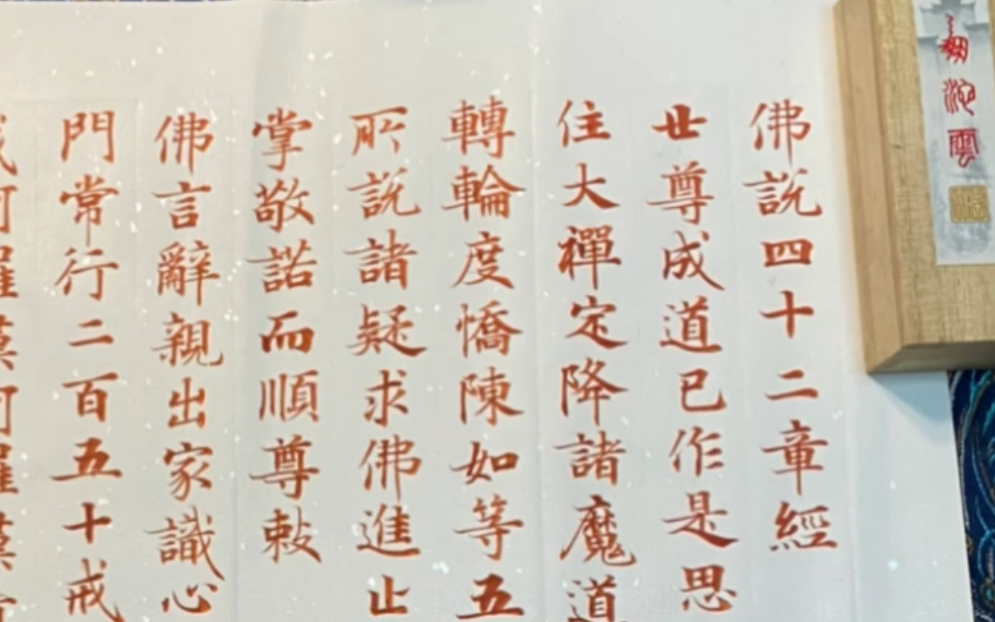 佛説四十二章經
世尊成道已作是思
住大禪定降諸魔道
轉輪度憍陳如等五
所説諸疑求佛進止
掌敬諾而順尊敕
佛言辭親出家識心
門常行二百五十戒
阿羅漢阿羅漢
池雲